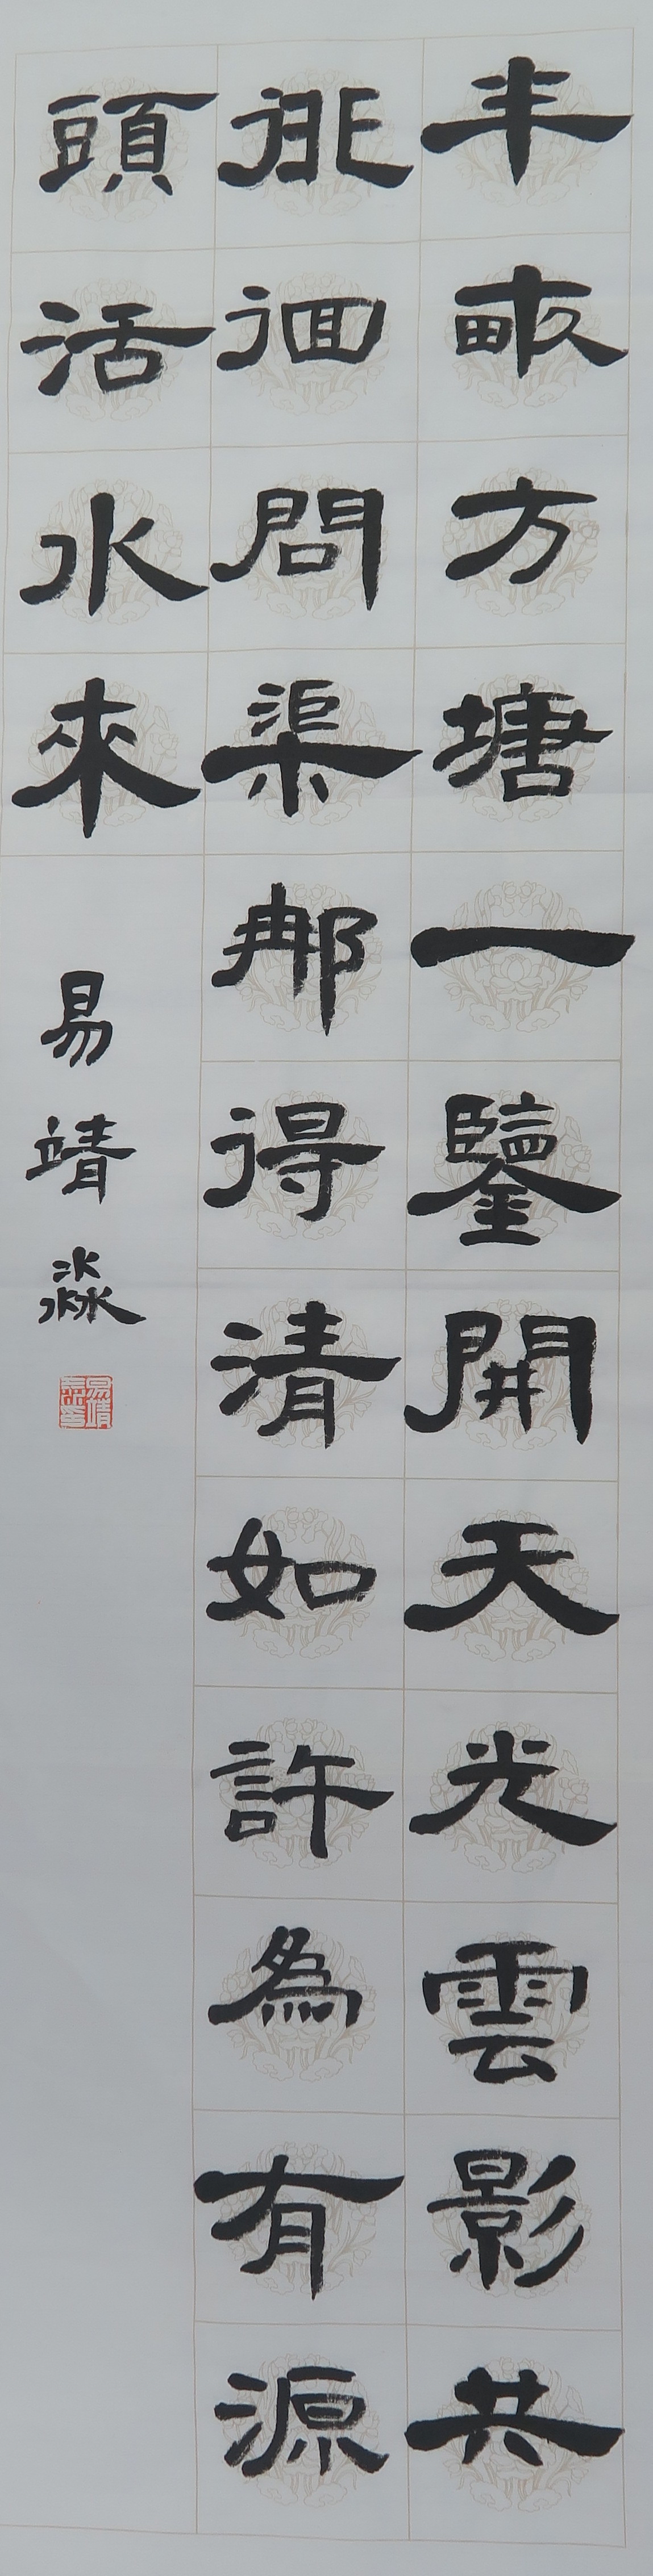 半畝方塘一鑒開天光雲影共
徘徊問渠那得清如許為有源
頭活水來
易靖淼
易靖淼印